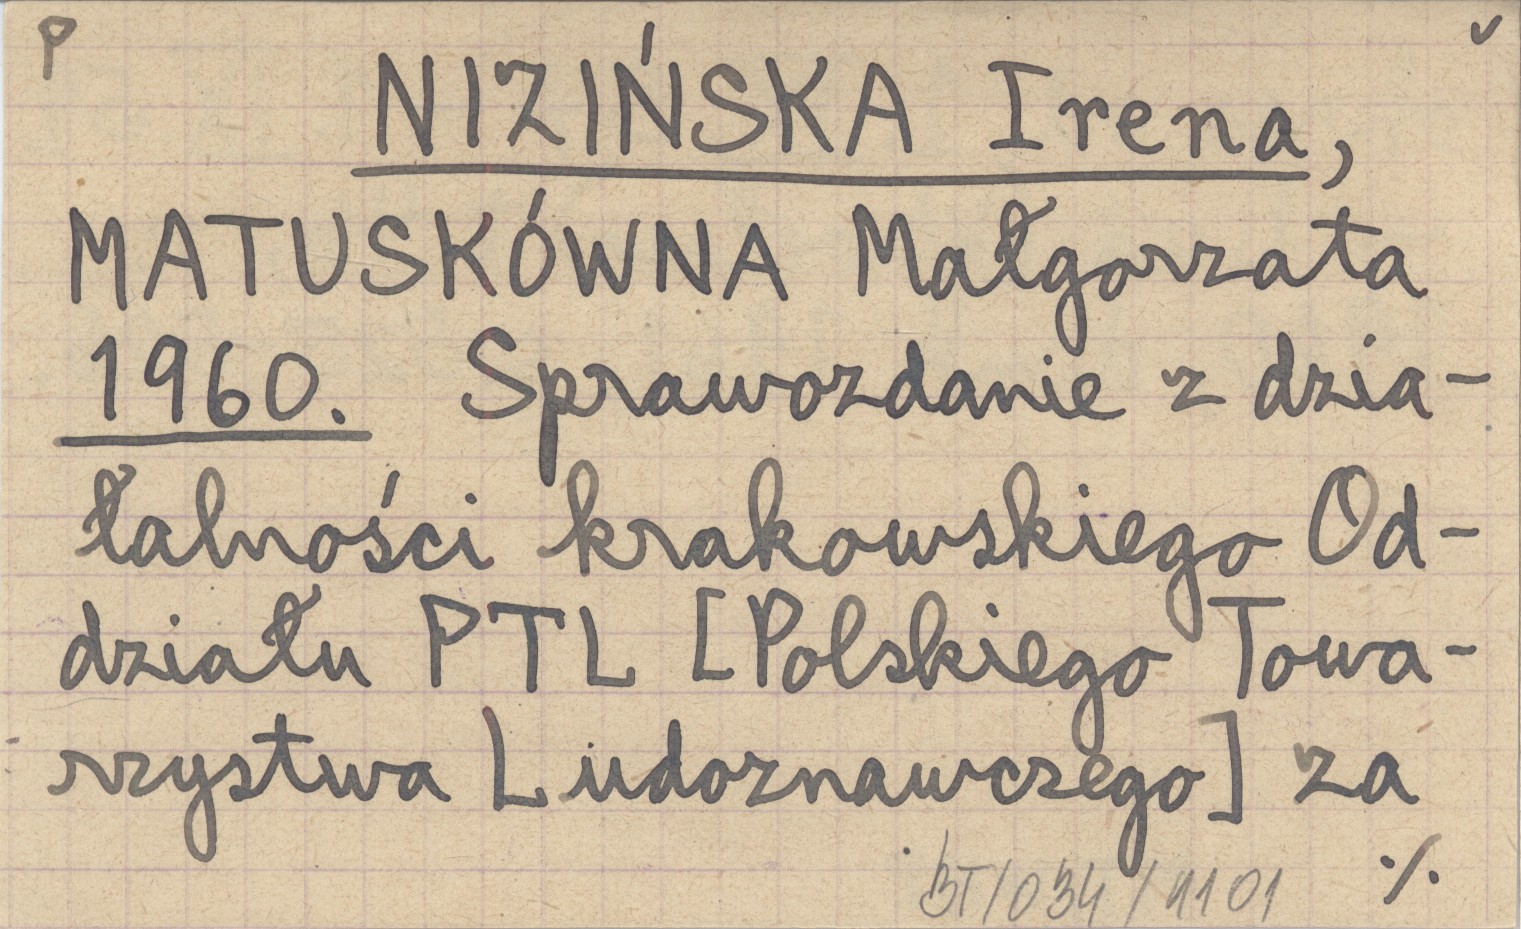 P
NIZIŃSKA Irena,
MATUSKÓWNA Małgorzata
1960. Sprawozdanie z dzia-
łalności krakowskiego Od-
działu PTL [Polskiego Towa-
rzystwa Ludoznawczego] za
BT/034/1101 ./.